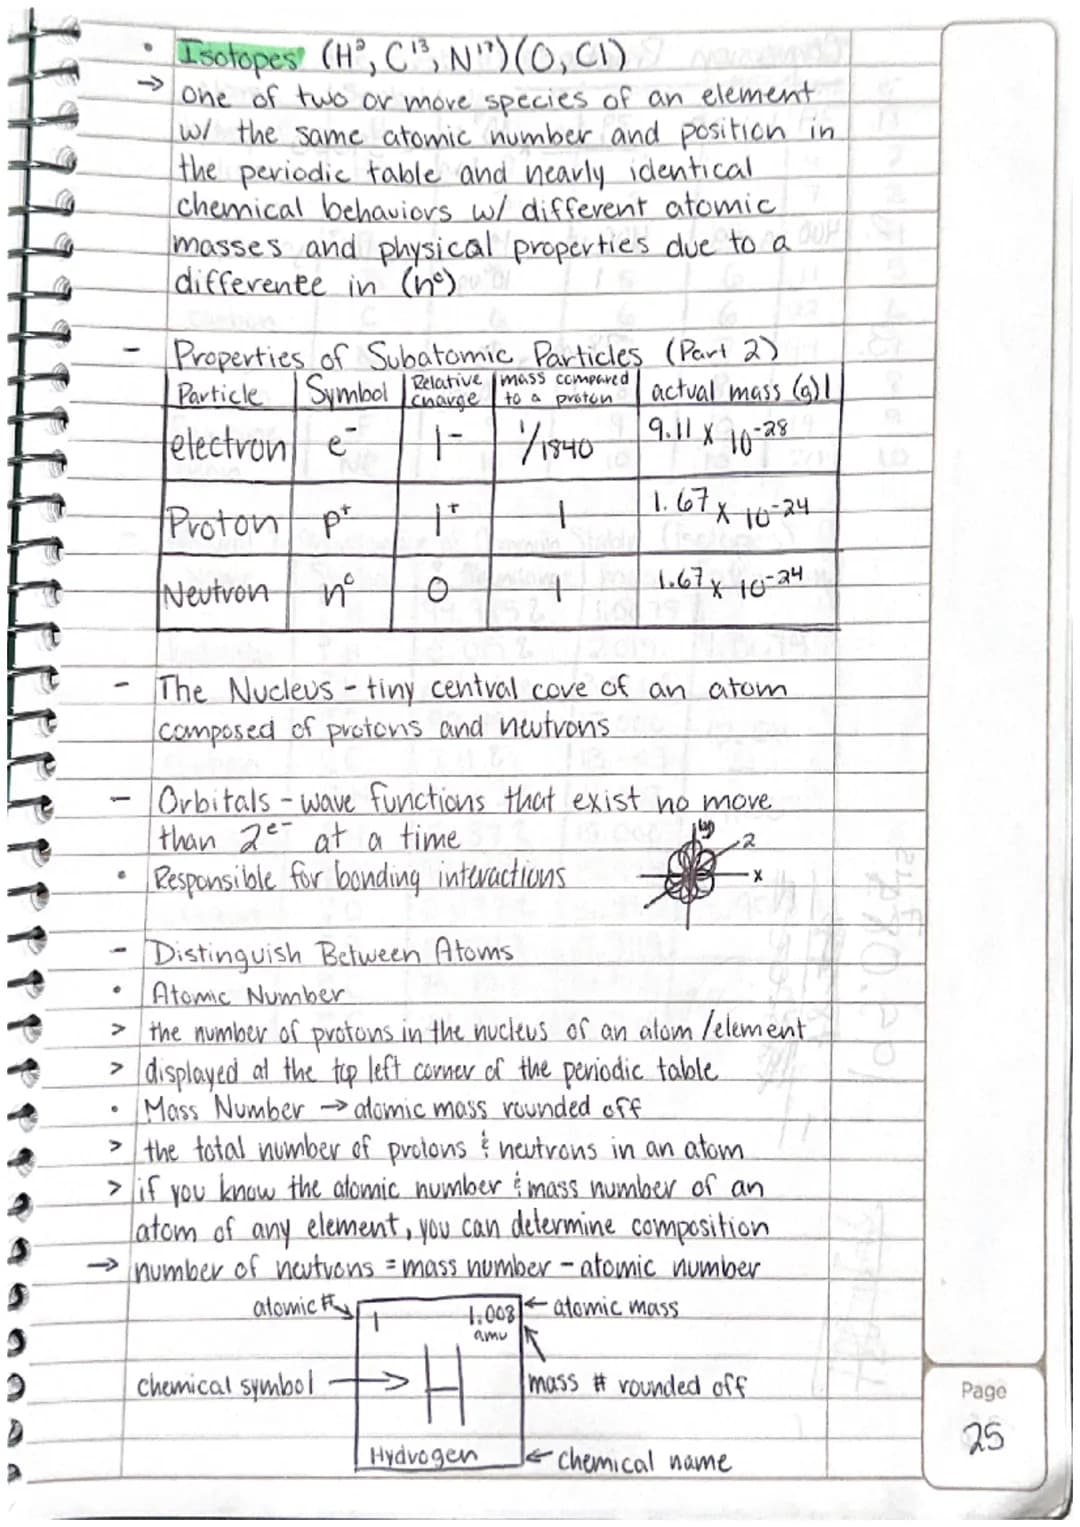 • Isotopes (H², C¹³, N¹⁷)(O, Cl)
→ one of two or more species of an element
w/ the same atomic number and position in
the periodic table and nearly identical
chemical behaviors w/ different atomic
masses and physical properties due to a
difference in (n°)
- Properties of Subatomic Particles (Part 2)
Particle | Symbol | Relative charge | mass compared to a proton | actual mass (g)
electron | e⁻ | 1- | 1/1840 | 9.11 x 10⁻²⁸
Proton | p⁺ | 1⁺ | 1 | 1.67 x 10⁻²⁴
Neutron | n° | 0 | 1 | 1.67 x 10⁻²⁴
- The Nucleus - tiny central core of an atom
composed of protons and neutrons
- Orbitals - wave functions that exist no more
than 2e⁻ at a time
• Responsible for bonding interactions
y
z
x
- Distinguish Between Atoms
• Atomic Number
> the number of protons in the nucleus of an atom/element
> displayed at the top left corner of the periodic table
• Mass Number → atomic mass rounded off
> the total number of protons & neutrons in an atom
> if you know the atomic number & mass number of an
atom of any element, you can determine composition
→ number of neutrons = mass number - atomic number
atomic # 1 1.008 ← atomic mass
amu
chemical symbol → H mass # rounded off
Hydrogen ← chemical name
Page
25